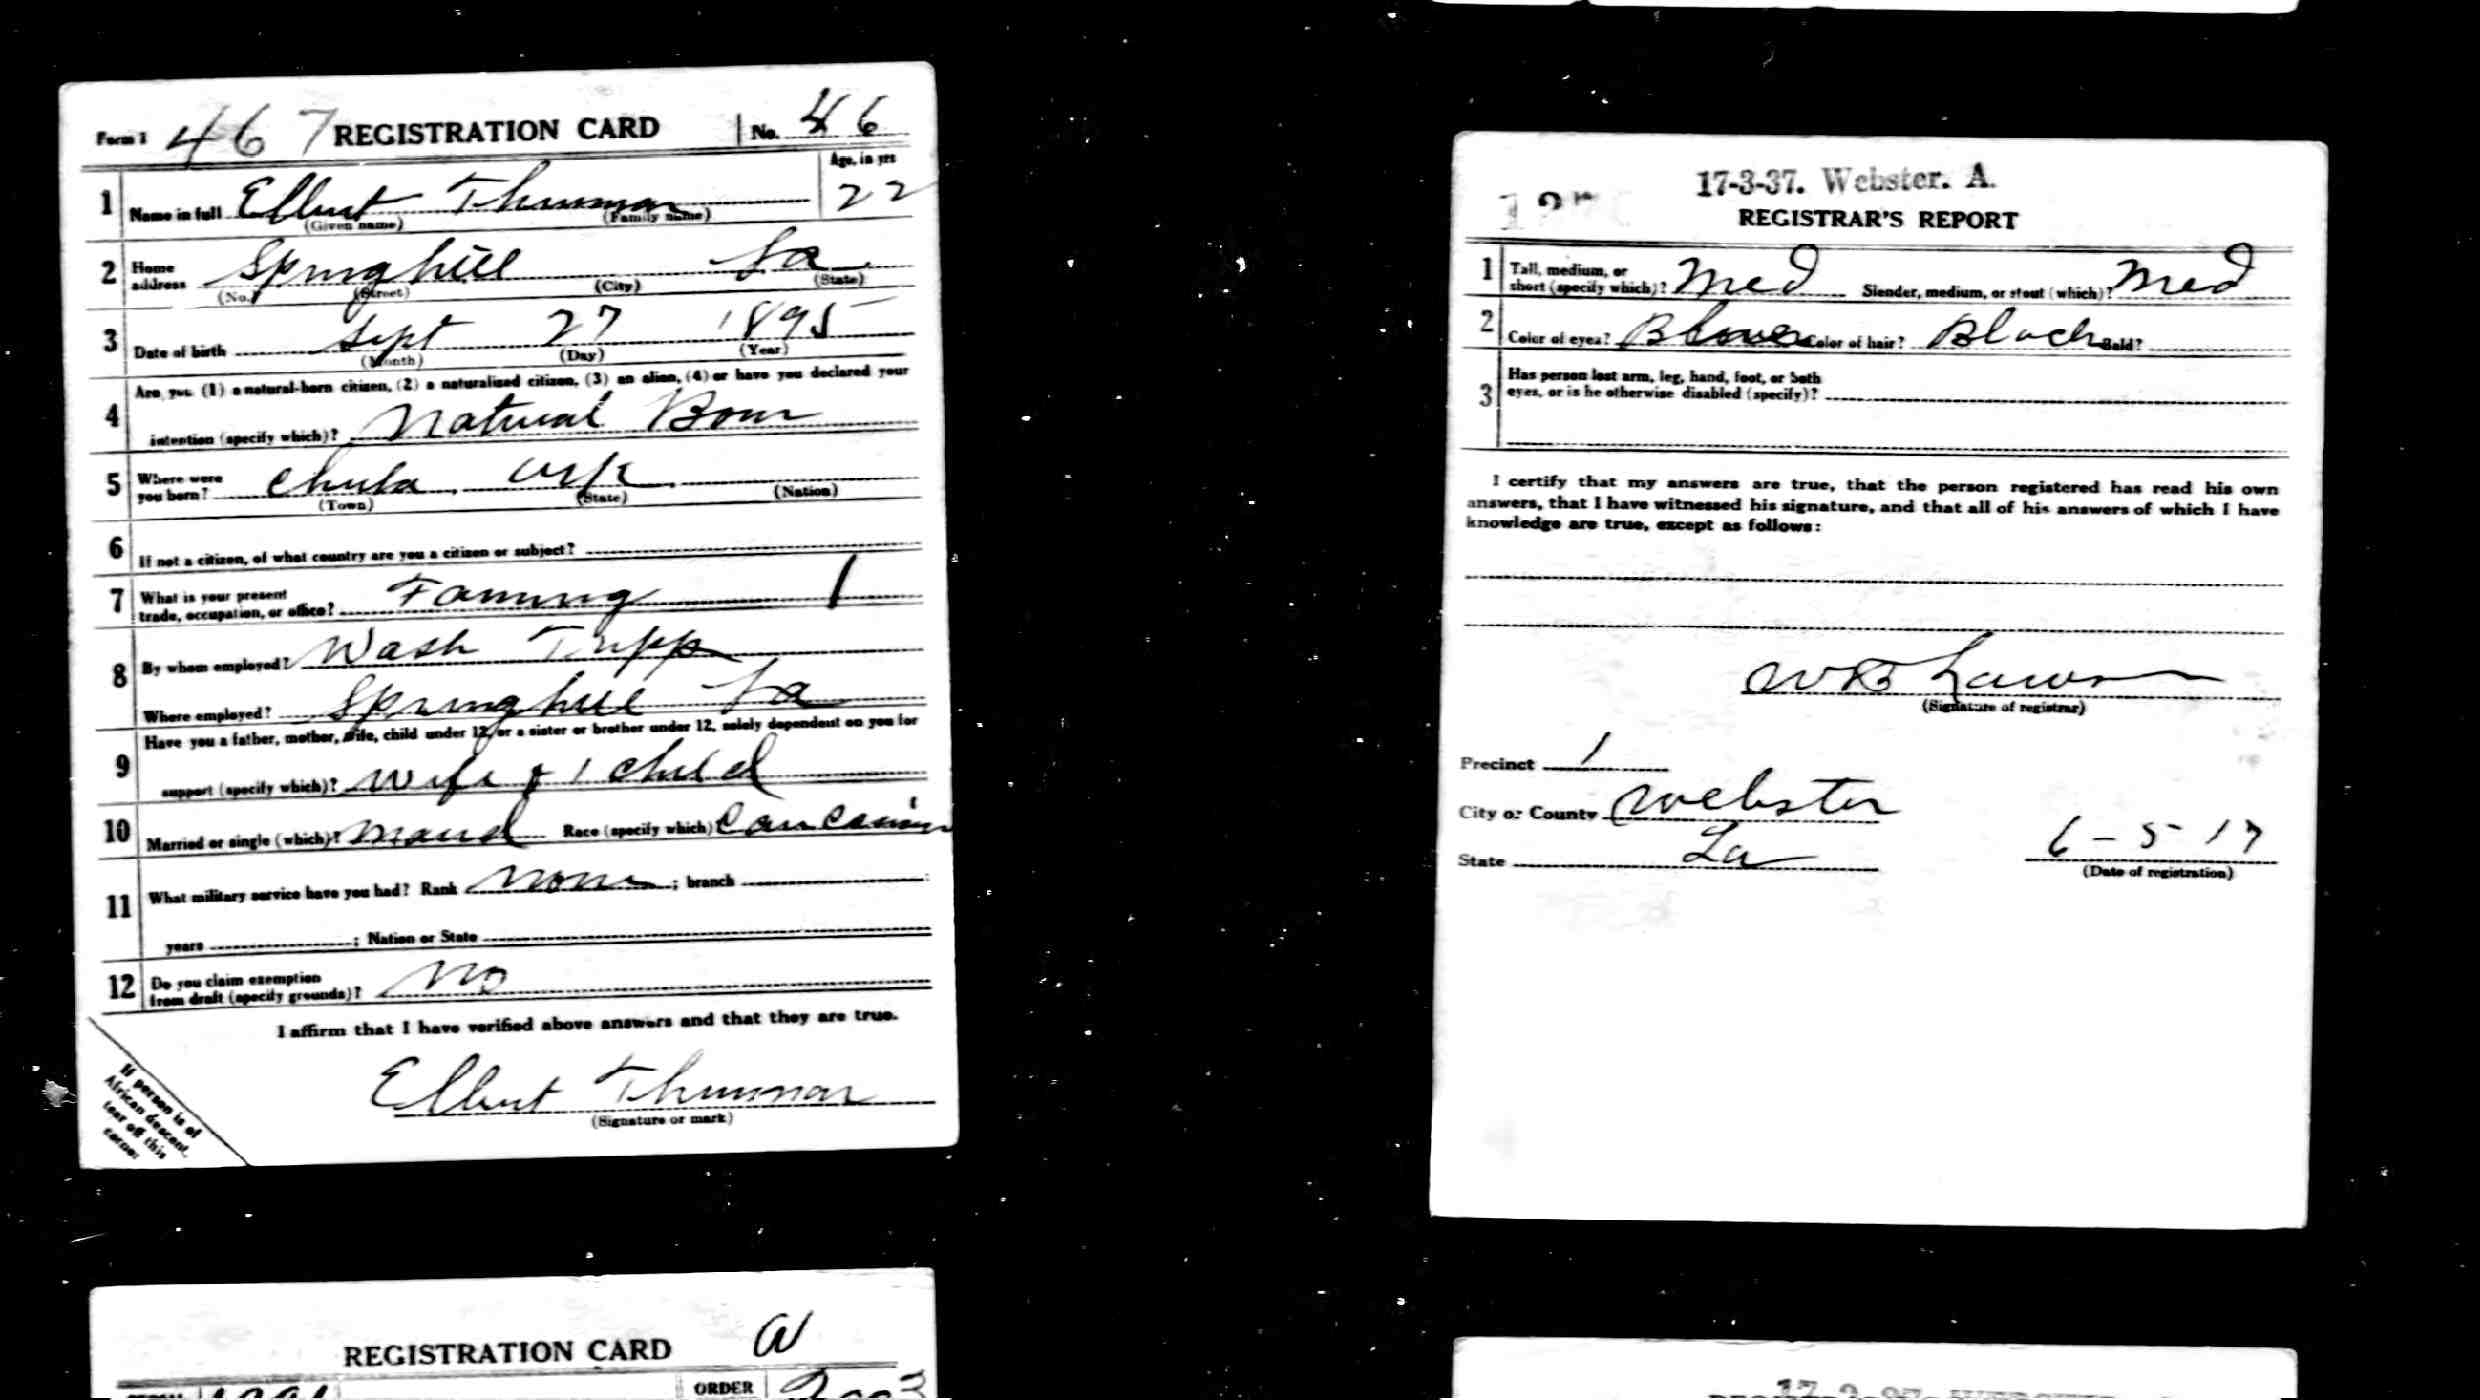 Form 1 467 REGISTRATION CARD No. 46
1 Name in full Elbert Thurman Age, in yrs 22
(Given name) (Family name)
2 Home address Springhill La
(No.) (Street) (City) (State)
3 Date of birth Sept 27 1895
(Month) (Day) (Year)
4 Are you (1) a natural-born citizen, (2) a naturalized citizen, (3) an alien, (4) or have you declared your
intention (specify which)? Natural Born
5 Where were you born? Chula, Ark.
(Town) (State) (Nation)
6 If not a citizen, of what country are you a citizen or subject?
7 What is your present trade, occupation, or office? Farming 1
8 By whom employed? Wash Tripp
Where employed? Springhill La
9 Have you a father, mother, wife, child under 12, or a sister or brother under 12, solely dependent on you for
support (specify which)? Wife & 1 child
10 Married or single (which)? Maried Race (specify which) Caucasian
11 What military service have you had? Rank None ; branch
years ; Nation or State
12 Do you claim exemption from draft (specify grounds)? No
I affirm that I have verified above answers and that they are true.
Elbert Thurman
(Signature or mark)
If person is of
African descent,
tear off this
corner
REGISTRATION CARD
ORDER
17-3-37. Webster. A.
REGISTRAR'S REPORT
1 Tall, medium, or short (specify which)? Med Slender, medium, or stout (which)? Med
2 Color of eyes? Brown Color of hair? Black Bald?
3 Has person lost arm, leg, hand, foot, or both
eyes, or is he otherwise disabled (specify)?
I certify that my answers are true, that the person registered has read his own
answers, that I have witnessed his signature, and that all of his answers of which I have
knowledge are true, except as follows:
(Signature of registrar)
Precinct 1
City or County Webster
State La 6-5-17
(Date of registration)